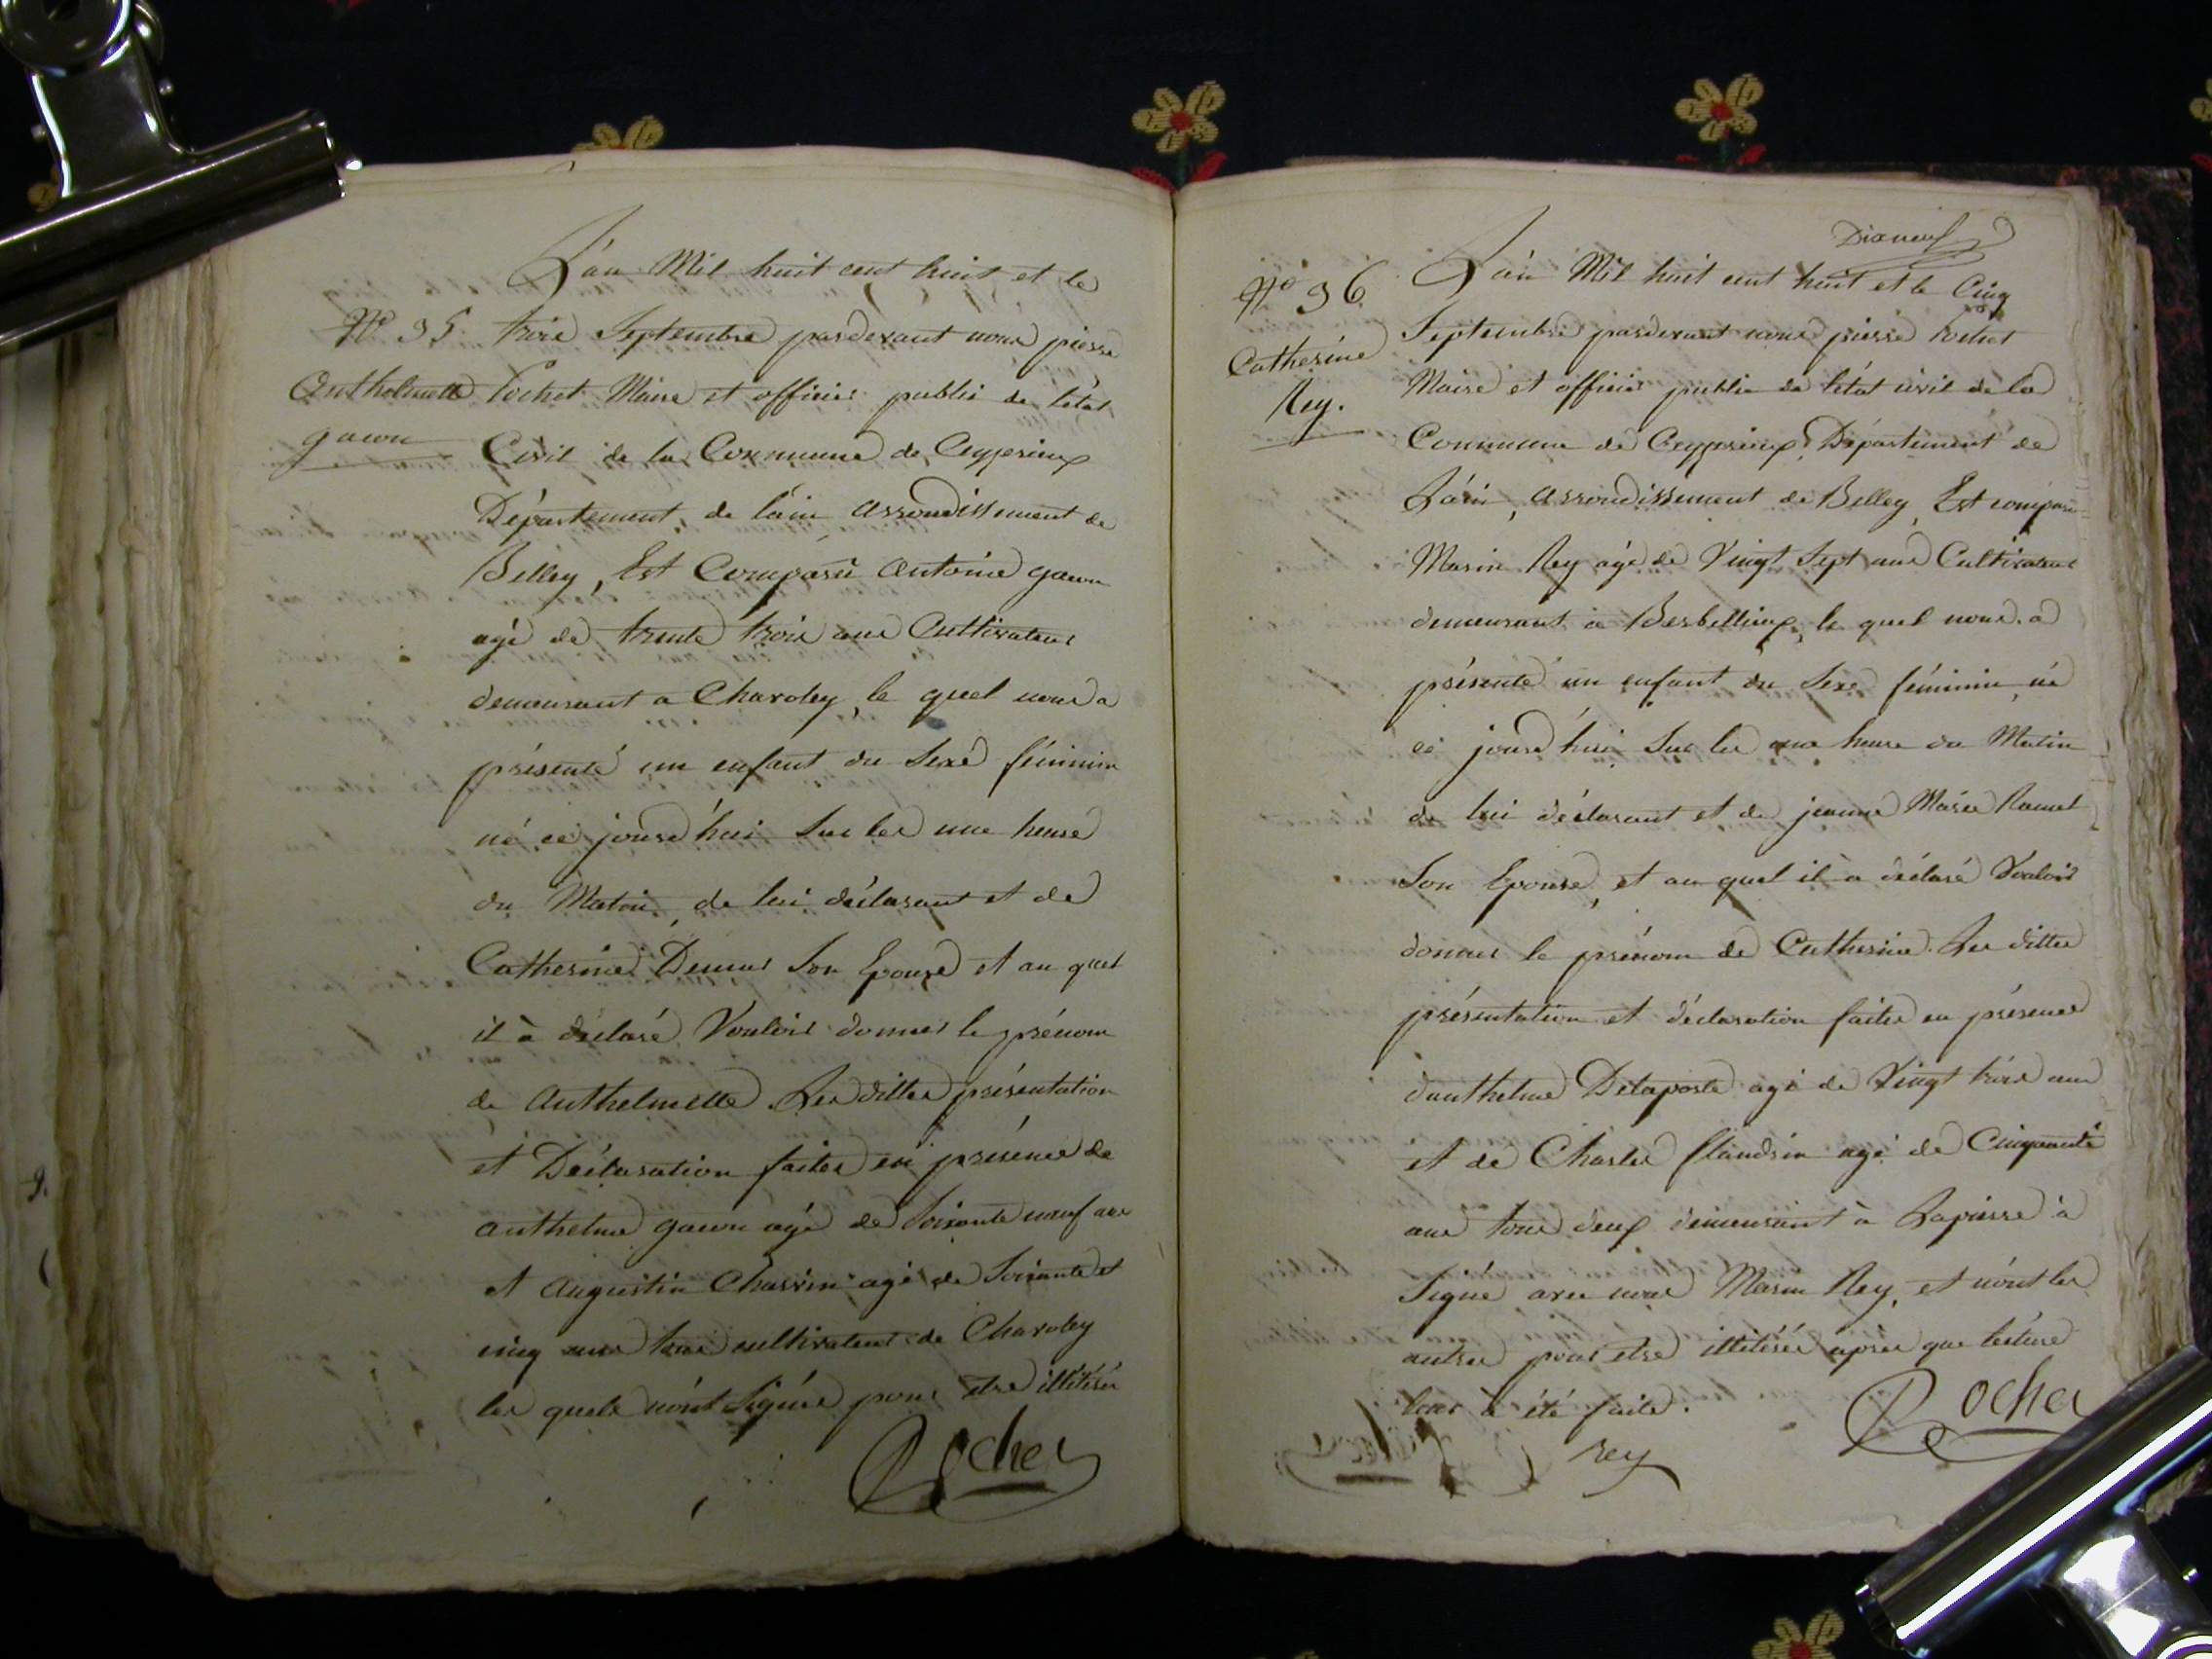 L'an Mil huit cent huit et le
N° 35. trois Septembre pardevant nous pierre
Anthelmette Rochet Maire et officier public de l'état
gacon Civil de la Commune de Ceyzerieux
Département de l'ain, arrondissement de
Belley, Est Comparu Antoine gacon
agé de trente trois ans Cultivateur
demeurant a Charoley, le quel nous a
présenté un enfant du Sexe féminin
né ce jourd'hui Sur les une heure
du Matin, de lui déclarant et de
Catherine Son Epouse et au quel
il à déclaré Vouloir donner le prénom
de Anthelmette. Les dittes présentation
et Déclaration faites en présence de
anthelme gacon agé de Soixante neuf ans
et augustin Charvin agé de Soixante et
cinq ans tous cultivateurs de Charoley
les quels n'ont Signés pour etre illitérés
Rochet
N° 36.
Catherine
Rey.
L'an Mil huit cent huit et le Cinq
Septembre pardevant nous pierre Rochet
Maire et officier public de l'état civil de la
Commune de Ceyzerieux, Département de
L'ain, arrondissement de Belley, Est comparu
Marin Rey agé de Vingt Sept ans Cultivateur
demeurant à Barbillieux, le quel nous a
présenté un enfant du Sexe féminin, né
ce jourd'hui Sur les heure du Matin
de lui déclarant et de jeanne Marie Ramel
Son Epouse, et au quel il à déclaré Vouloir
donner le prénom de Catherine. Les dittes
présentation et déclaration faites en présence
d'anthelme Delaporte agé de Vingt trois ans
et de Charles flandrin agé de Cinquante
ans tous deux demeurant à Lapierre à
Signé avec nous Marin Rey, et n'ont les
autres pour etre illitérés après que lecture
leur à été faite.
rey
Rochet